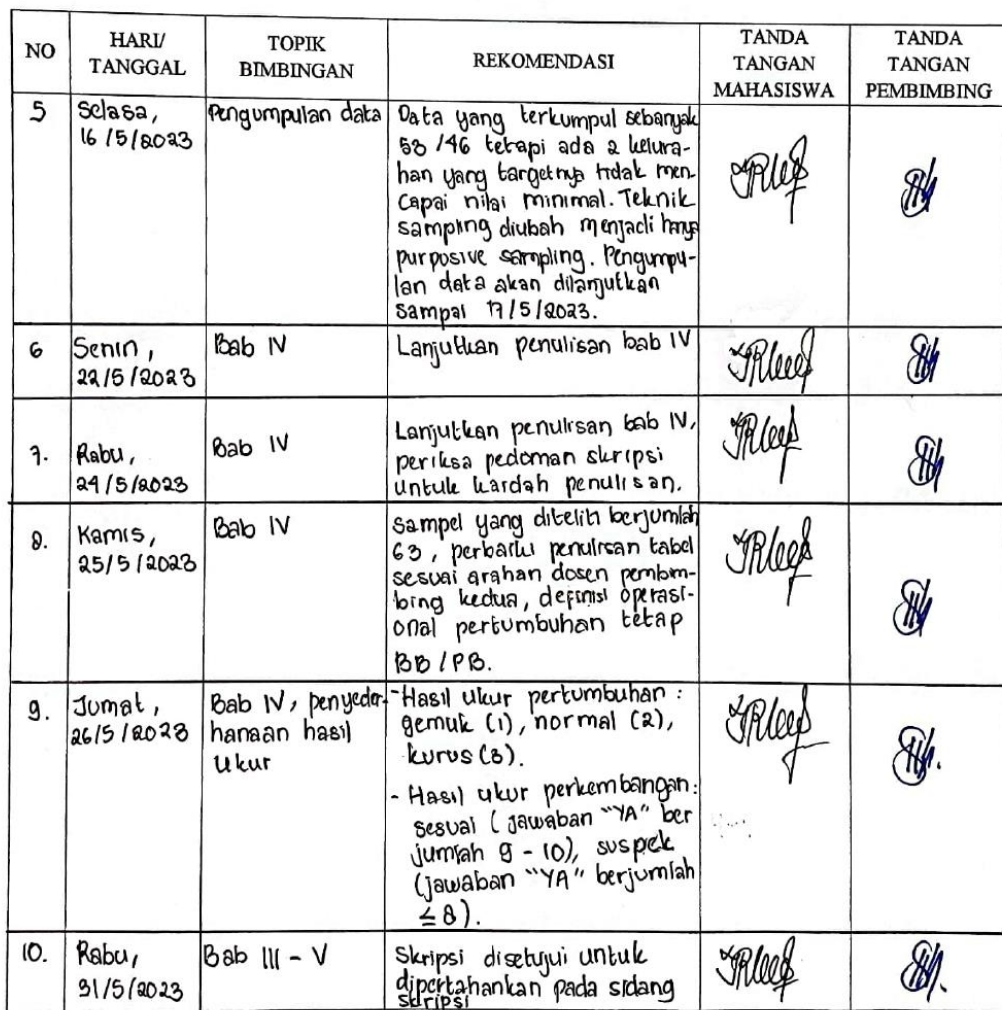 NO
HARI/
TANGGAL
TOPIK
BIMBINGAN
REKOMENDASI
TANDA
TANGAN
MAHASISWA
TANDA
TANGAN
PEMBIMBING
5
Selasa,
16/5/2023
Pengumpulan data
Data yang terkumpul sebanyak
53/46 tetapi ada 2 kelura-
han yang targetnya tidak men-
capai nilai minimal. Teknik
sampling diubah menjadi hanya
purposive sampling. Pengumpu-
lan data akan dilanjutkan
sampai 17/5/2023.
6
Senin,
22/5/2023
Bab IV
Lanjutkan penulisan bab IV
7.
Rabu,
24/5/2023
Bab IV
Lanjutkan penulisan bab IV,
periksa pedoman skripsi
untuk kaidah penulisan.
8.
Kamis,
25/5/2023
Bab IV
Sampel yang diteliti berjumlah
63, perbaiki penulisan tabel
sesuai arahan dosen pembim-
bing kedua, definisi operasi-
onal pertumbuhan tetap
BB/PB.
9.
Jumat,
26/5/2023
Bab IV, penyeder-
hanaan hasil
ukur
- Hasil ukur pertumbuhan :
gemuk (1), normal (2),
kurus (3).
- Hasil ukur perkembangan:
sesuai (jawaban "YA" ber
jumlah 9 - 10), suspek
(jawaban "YA" berjumlah
≤ 8).
10.
Rabu,
31/5/2023
Bab III - V
Skripsi disetujui untuk
dipertahankan pada sidang
skripsi